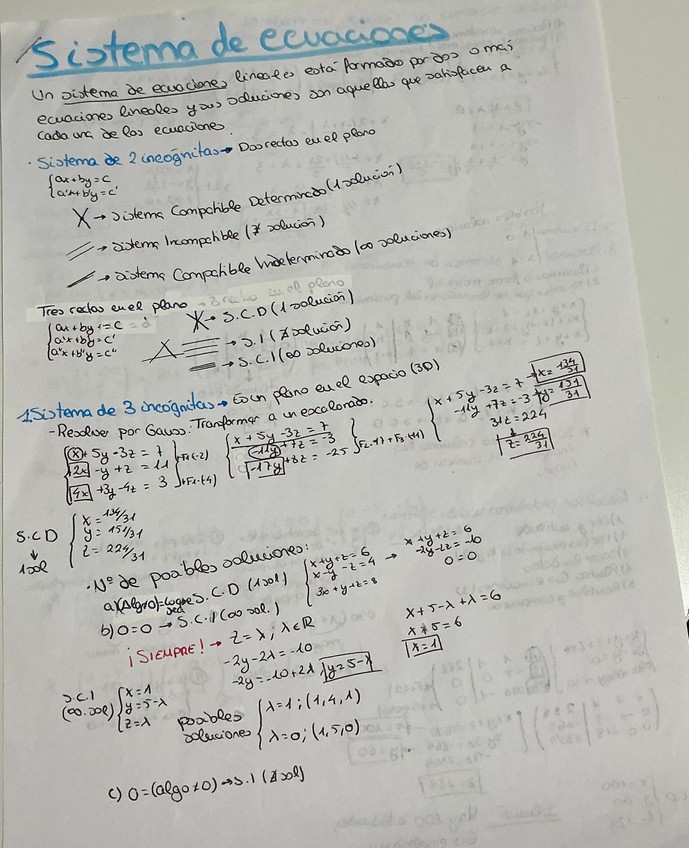 Sistema de ecuaciones
Un sistema de ecuaciones lineales está formado por dos o más
ecuaciones lineales y sus soluciones son aquellas que satisfacen a
cada una de las ecuaciones.
· Sistema de 2 incógnitas → Dos rectas en el plano
{ax+by=c
{a'x+b'y=c'
X → Sistema Compatible Determinado (1 solución)
→ Sistema Incompatible (∄ solución)
→ Sistema Compatible Indeterminado (∞ soluciones)
Tres rectas en el plano
{ax+by=c
{a'x+b'y=c'
{a''x+b''y=c''
→ S.C.D (1 solución)
→ S.I (∄ solución)
→ S.C.I (∞ soluciones)
1. Sistema de 3 incógnitas → Es un plano en el espacio (3D)
- Resolver por Gauss: Transformar a un escalonado.
(x)+5y-3z=7
2x-y+z=11 }+F1·(-2)
4x+3y-4z=3 }+F1·(-4)
{x+5y-3z=7
-11y+7z=-3
-17y+8z=-25
{x+5y-3z=7 → x=134/31
-11y+7z=-3 → y=151/31
31z=224
z=224/31
S.C.D
↓
1 sol
{x=134/31
y=151/31
z=224/31
· Nº de posibles soluciones:
S.C.D (1 sol)
{x+y+z=6
x-y-z=4
3x+y+z=8
→ x+y+z=6
-2y-2z=-10
0=0
b) 0=0 → S.C.I (∞ sol.)
¡SIEMPRE! → z=λ; λ∈R
-2y-2λ=-10
-2y=-10+2λ y=5-λ
x+5-λ+λ=6
x+5=6
x=1
S.C.I
(∞ sol)
{x=1
y=5-λ
z=λ
posibles
soluciones
{λ=1; (1,4,1)
λ=0; (1,5,0)
c) 0=(algo≠0) → S.I (∄ sol)